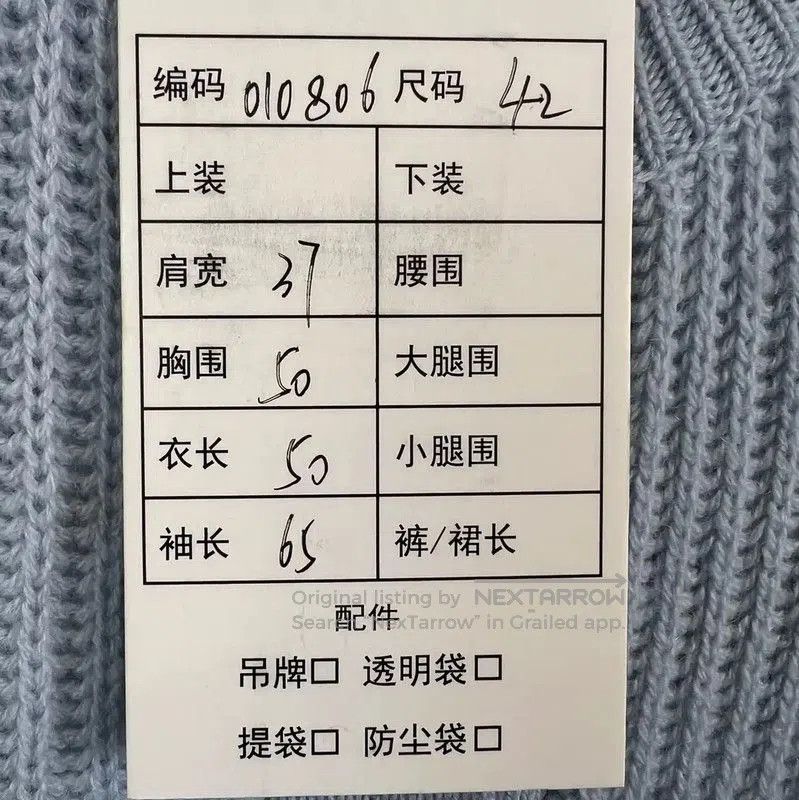 编码 010806 尺码 42
上装 下装
肩宽 37 腰围
胸围 50 大腿围
衣长 50 小腿围
袖长 65 裤/裙长
Original listing by NEXTARROW
配件
Search "NexTarrow" in Grailed app.
吊牌□ 透明袋□
提袋□ 防尘袋□